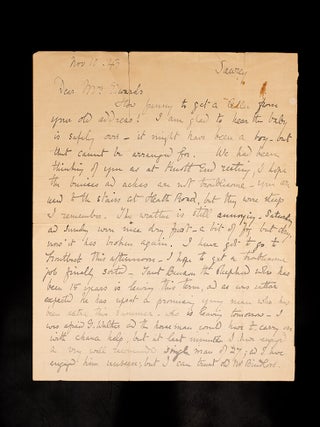 Nov 15. 43
Sawrey
Dear Mrs Edwards
How funny to get a letter from
your old address! I am glad to hear the baby
is safely over - it might have been a boy - but
that cannot be arranged for. We had been
thinking of you as at Heath End resting, I hope
the bruises and aches are not troublesome - you are
used to the stairs at Heath Road, but they were steep
I remember. The weather is still annoying. Saturday
and Sunday were nice dry frost - a bit of fog but dry,
now it has broken again. I have got to go to
Troutbeck this afternoon - I hope to get a troublesome
job finally sorted - Tant Benson the Shepherd who has
been 18 years is leaving this term, and as was
expected he has upset a promising young man who has
been extra this summer. He is leaving tomorrow - I
was afraid G. Walker and the horseman would have to carry on
with chance help, but at last moment I have engaged
a very well recommended single man of 27; and I have
engaged him unseen; but I can trust old Mr